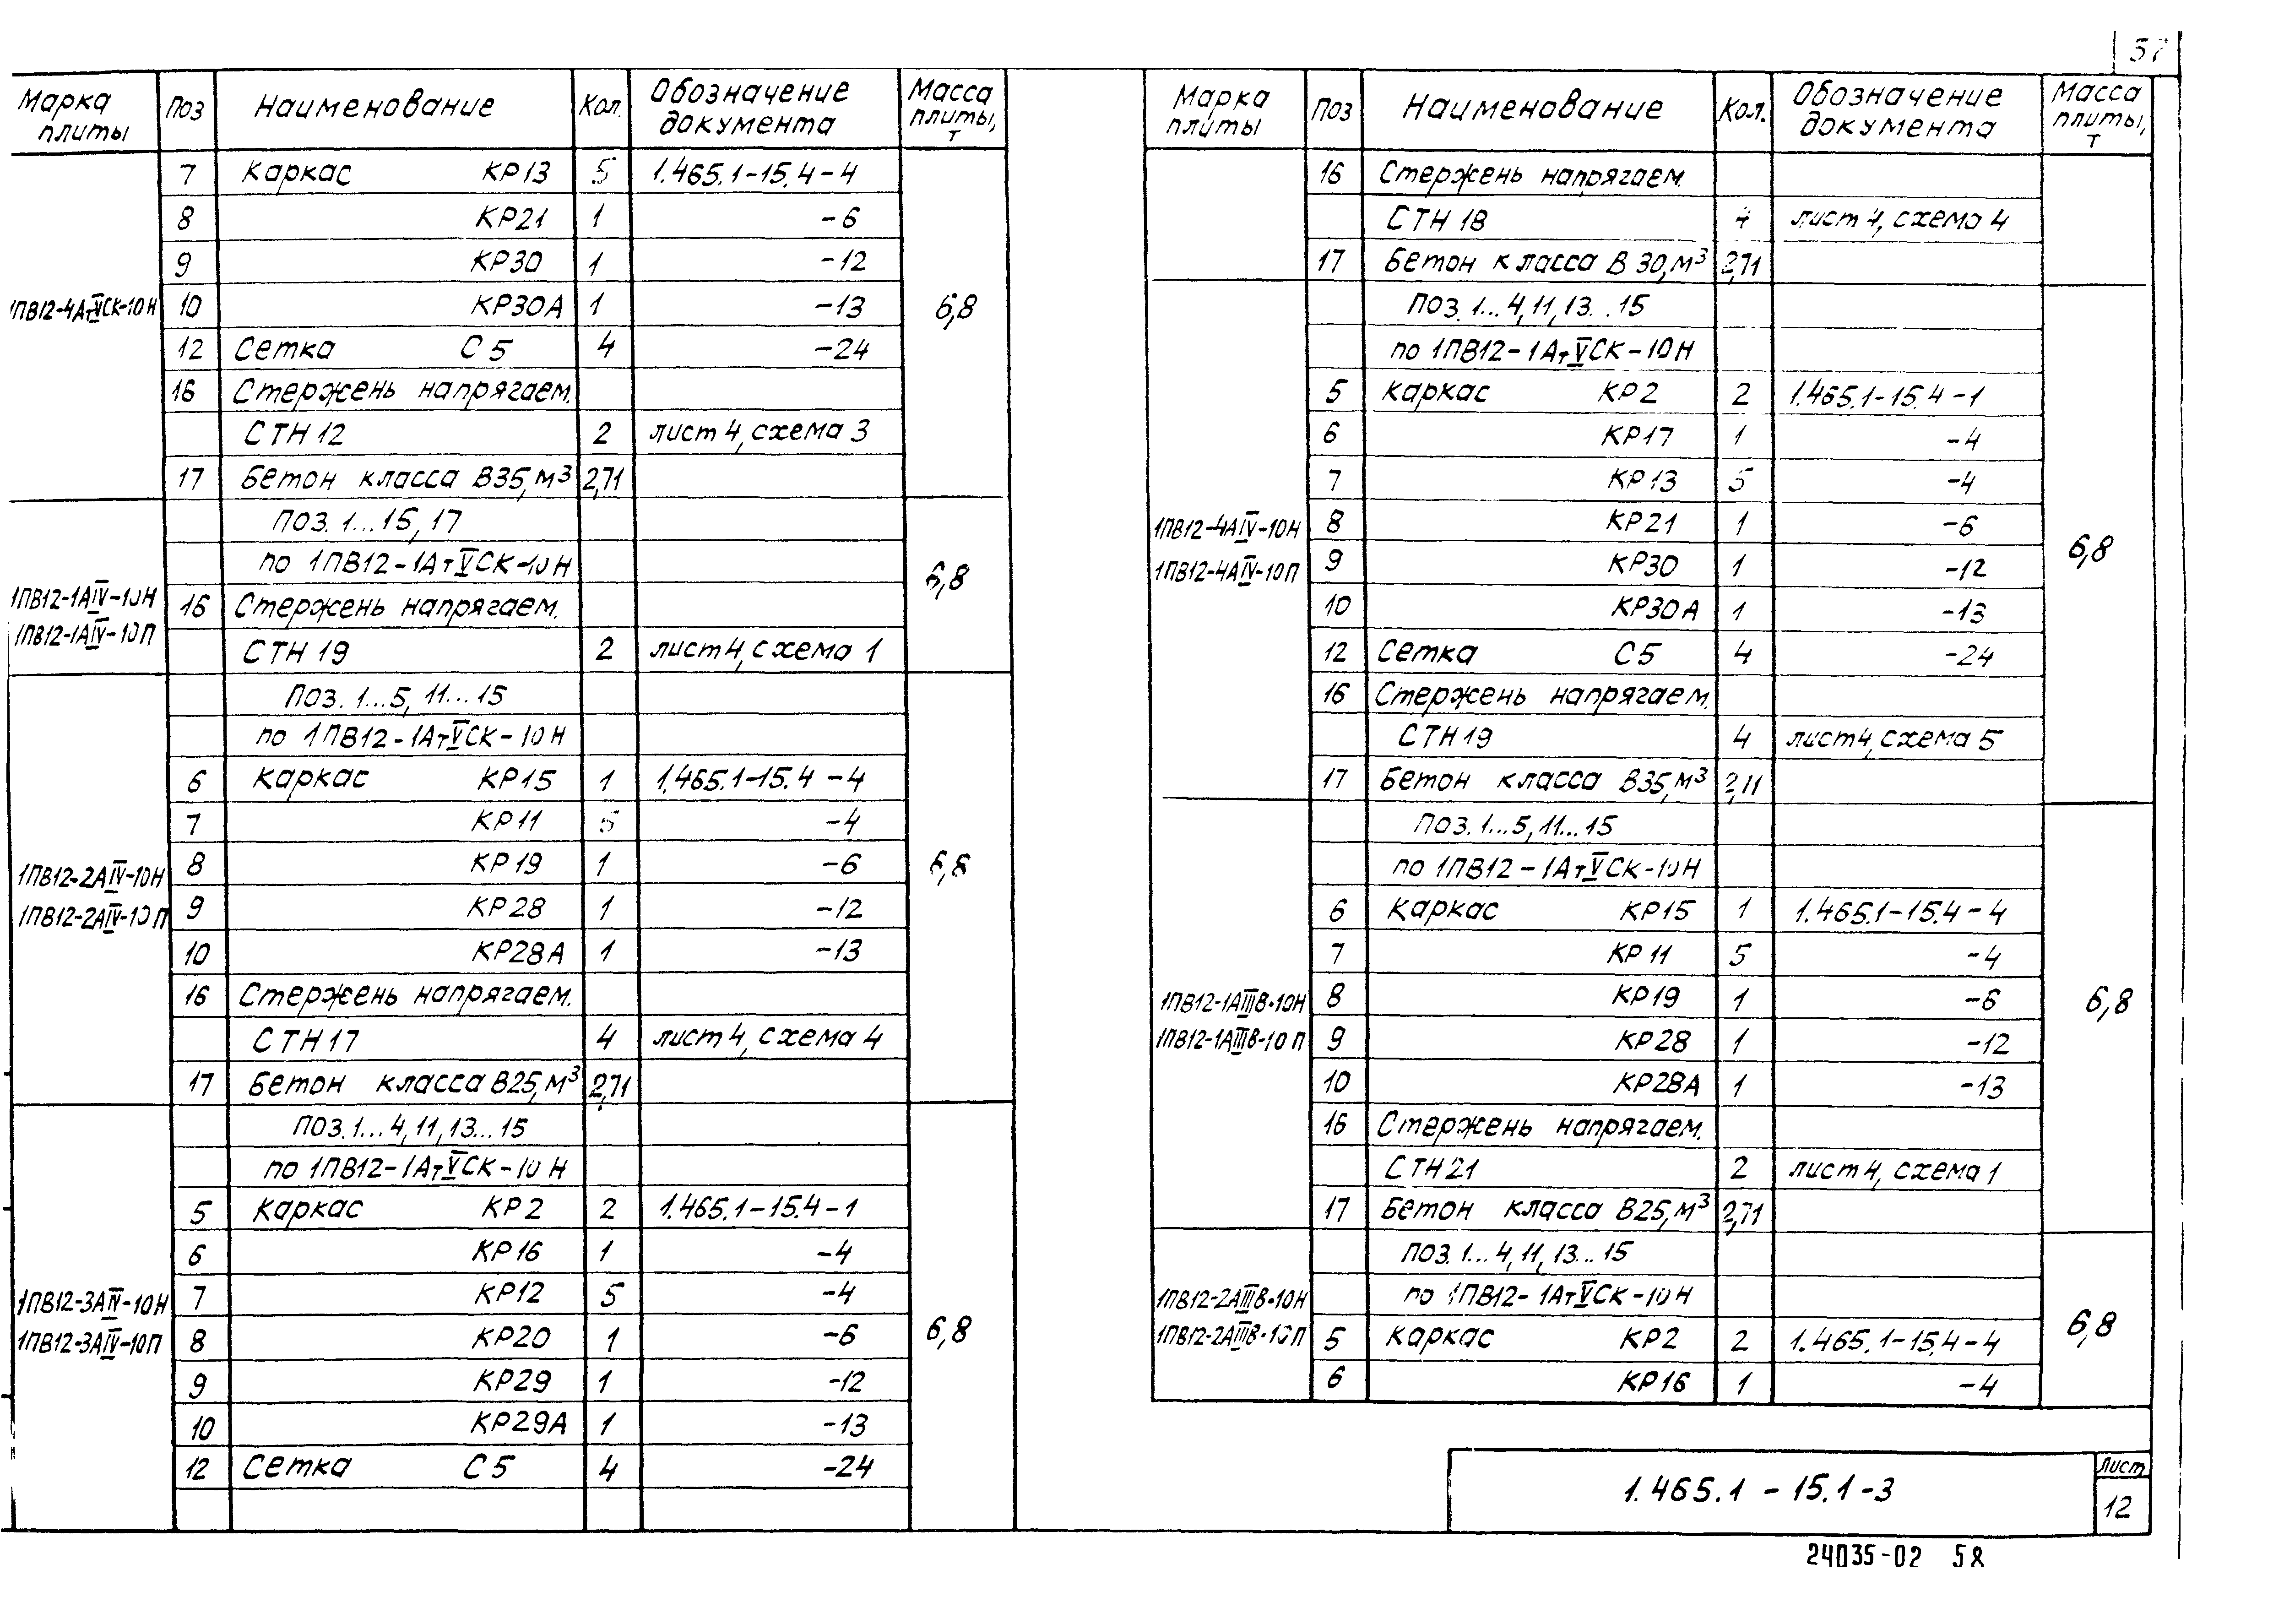 57
Марка плиты | Поз | Наименование | Кол. | Обозначение документа | Масса плиты, т
1ПВ12-4АтVСК-10Н | 7 | Каркас КР13 | 5 | 1.465.1-15.4-4 | 6,8
8 | КР21 | 1 | -6
9 | КР30 | 1 | -12
10 | КР30А | 1 | -13
12 | Сетка С5 | 4 | -24
16 | Стержень напрягаем.
СТН12 | 2 | лист 4, схема 3
17 | Бетон класса В35, м³ | 2,71
1ПВ12-1АIV-10Н
1ПВ12-1АIV-10П
Поз. 1...15, 17 | 6,8
по 1ПВ12-1АтVСК-10Н
16 | Стержень напрягаем.
СТН19 | 2 | лист 4, схема 1
1ПВ12-2АIV-10Н
1ПВ12-2АIV-10П
Поз. 1...5, 11...15 | 6,8
по 1ПВ12-1АтVСК-10Н
6 | Каркас КР15 | 1 | 1.465.1-15.4-4
7 | КР11 | 5 | -4
8 | КР19 | 1 | -6
9 | КР28 | 1 | -12
10 | КР28А | 1 | -13
16 | Стержень напрягаем.
СТН17 | 4 | лист 4, схема 4
17 | Бетон класса В25, м³ | 2,71
1ПВ12-3АIV-10Н
1ПВ12-3АIV-10П
Поз. 1...4, 11, 13...15 | 6,8
по 1ПВ12-1АтVСК-10Н
5 | Каркас КР2 | 2 | 1.465.1-15.4-1
6 | КР16 | 1 | -4
7 | КР12 | 5 | -4
8 | КР20 | 1 | -6
9 | КР29 | 1 | -12
10 | КР29А | 1 | -13
12 | Сетка С5 | 4 | -24
Марка плиты | Поз | Наименование | Кол. | Обозначение документа | Масса плиты, т
16 | Стержень напрягаем.
СТН18 | 4 | лист 4, схема 4
17 | Бетон класса В30, м³ | 2,71
1ПВ12-4АIV-10Н
1ПВ12-4АIV-10П
Поз. 1...4, 11, 13...15 | 6,8
по 1ПВ12-1АтVСК-10Н
5 | Каркас КР2 | 2 | 1.465.1-15.4-1
6 | КР17 | 1 | -4
7 | КР13 | 5 | -4
8 | КР21 | 1 | -6
9 | КР30 | 1 | -12
10 | КР30А | 1 | -13
12 | Сетка С5 | 4 | -24
16 | Стержень напрягаем.
СТН19 | 4 | лист 4, схема 5
17 | Бетон класса В35, м³
1ПВ12-1АIIIВ-10Н
1ПВ12-1АIIIВ-10П
Поз. 1...5, 11...15 | 6,8
по 1ПВ12-1АтVСК-10Н
6 | Каркас КР15 | 1 | 1.465.1-15.4-4
7 | КР11 | 5 | -4
8 | КР19 | 1 | -6
9 | КР28 | 1 | -12
10 | КР28А | 1 | -13
16 | Стержень напрягаем.
СТН21 | 2 | лист 4, схема 1
17 | Бетон класса В25, м³ | 2,71
1ПВ12-2АIIIВ-10Н
1ПВ12-2АIIIВ-10П
Поз. 1...4, 11, 13...15 | 6,8
по 1ПВ12-1АтVСК-10Н
5 | Каркас КР2 | 2 | 1.465.1-15.4-4
6 | КР16 | 1 | -4
1.465.1-15.1-3
Лист
12
24035-02 58